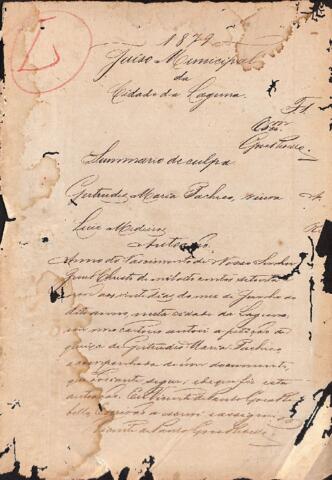 1879
Juiso Municipal
da
Cidade da Laguna.
Summario de culpa
Gertrudes Maria Pacheco, viuva A.
Luis Medeiros R
Autuação
Anno do Nascimento de Nosso Senhor
Jesus Christo de mil oito centos setenta
e nove aos vinte dias do mes de Junho do
dito anno, nesta cidade da Laguna,
em meo cartorio autuei a petição de
queixa de Gertrudes Maria Pacheco
acompanhada de um documento,
que adiante segue, do que fiz esta
autuação. Eu Vicente de Paulo
escrivão a escrevi e assignei.
Vicente de Paulo